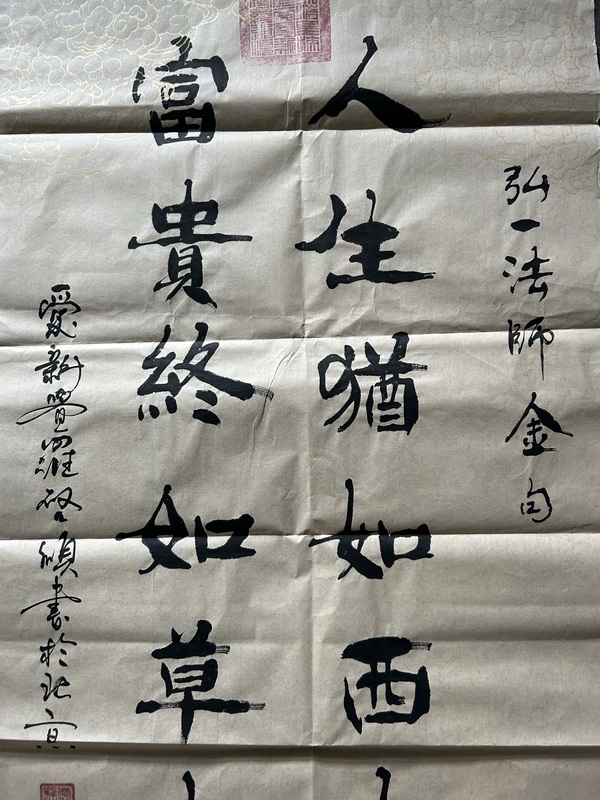 弘一法師金句
人生猶如西
富貴終如草
愛新覺羅啓頎書於北京